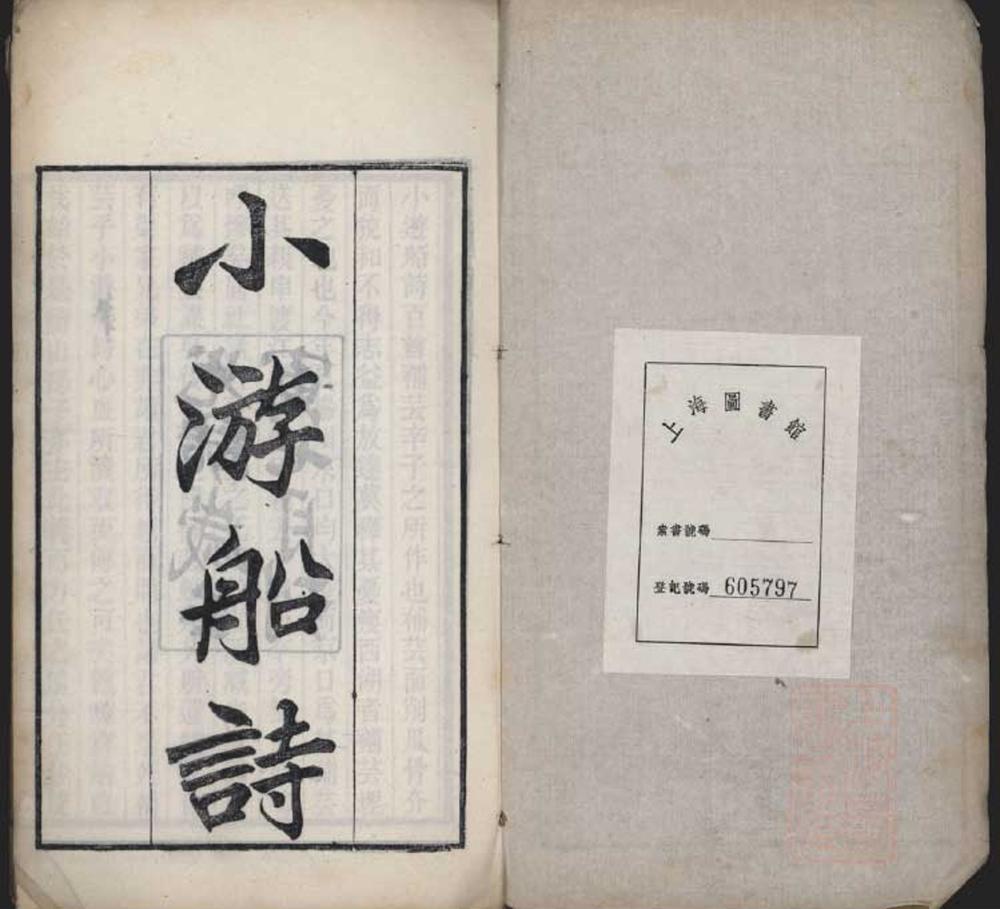 上海圖書館
索書號碼
登記號碼 605797
小游船詩